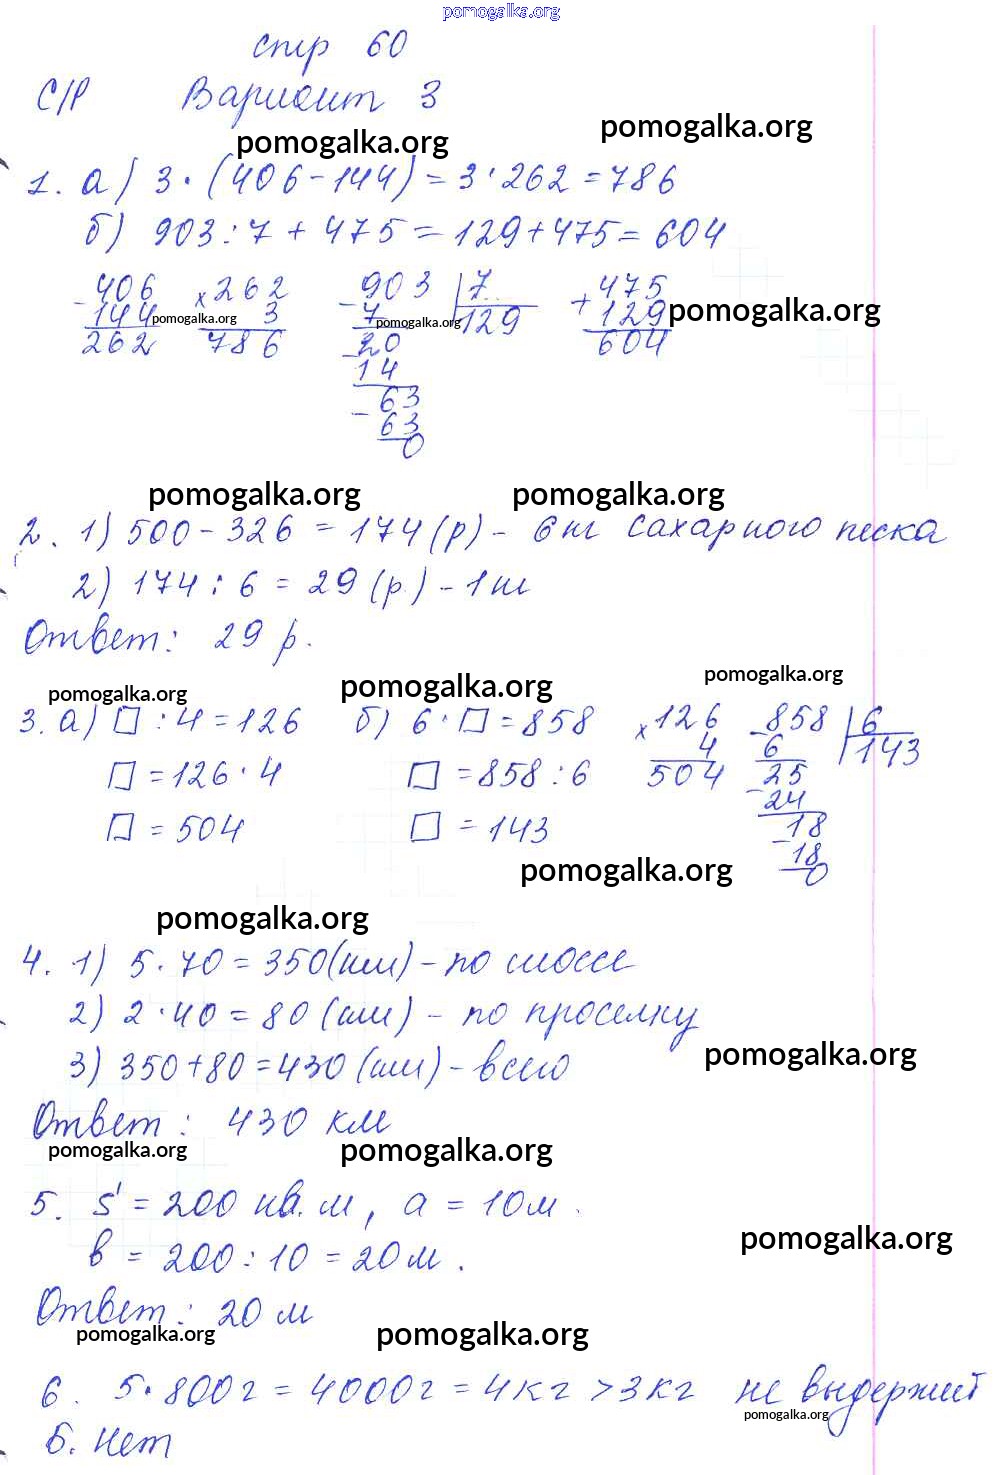 pomogalka.org
стр 60
С/Р Вариант 3
pomogalka.org pomogalka.org
1. а) 3 · (406 - 144) = 3 · 262 = 786
б) 903 : 7 + 475 = 129 + 475 = 604
- 406 × 262 - 903 | 7 + 475
144 3 7 129 129
pomogalka.org pomogalka.org pomogalka.org
262 786 - 20 604
14
- 63
63
0
pomogalka.org pomogalka.org
2. 1) 500 - 326 = 174 (р) - 6 кг сахарного песка
2) 174 : 6 = 29 (р.) - 1 кг
Ответ: 29 р.
pomogalka.org pomogalka.org pomogalka.org
3. а) □ : 4 = 126 б) 6 · □ = 858 × 126 - 858 | 6
4 6 143
□ = 126 · 4 □ = 858 : 6 504 25
- 24
□ = 504 □ = 143 18
- 18
0
pomogalka.org
pomogalka.org
4. 1) 5 · 70 = 350 (км) - по шоссе
2) 2 · 40 = 80 (км) - по проселку
3) 350 + 80 = 430 (км) - всего
pomogalka.org
Ответ: 430 км
pomogalka.org pomogalka.org
5. S = 200 кв. м, а = 10 м.
pomogalka.org
в = 200 : 10 = 20 м.
Ответ: 20 м
pomogalka.org pomogalka.org
6. 5 · 800 г = 4000 г = 4 кг > 3 кг не выдержит
pomogalka.org
Б. Нет